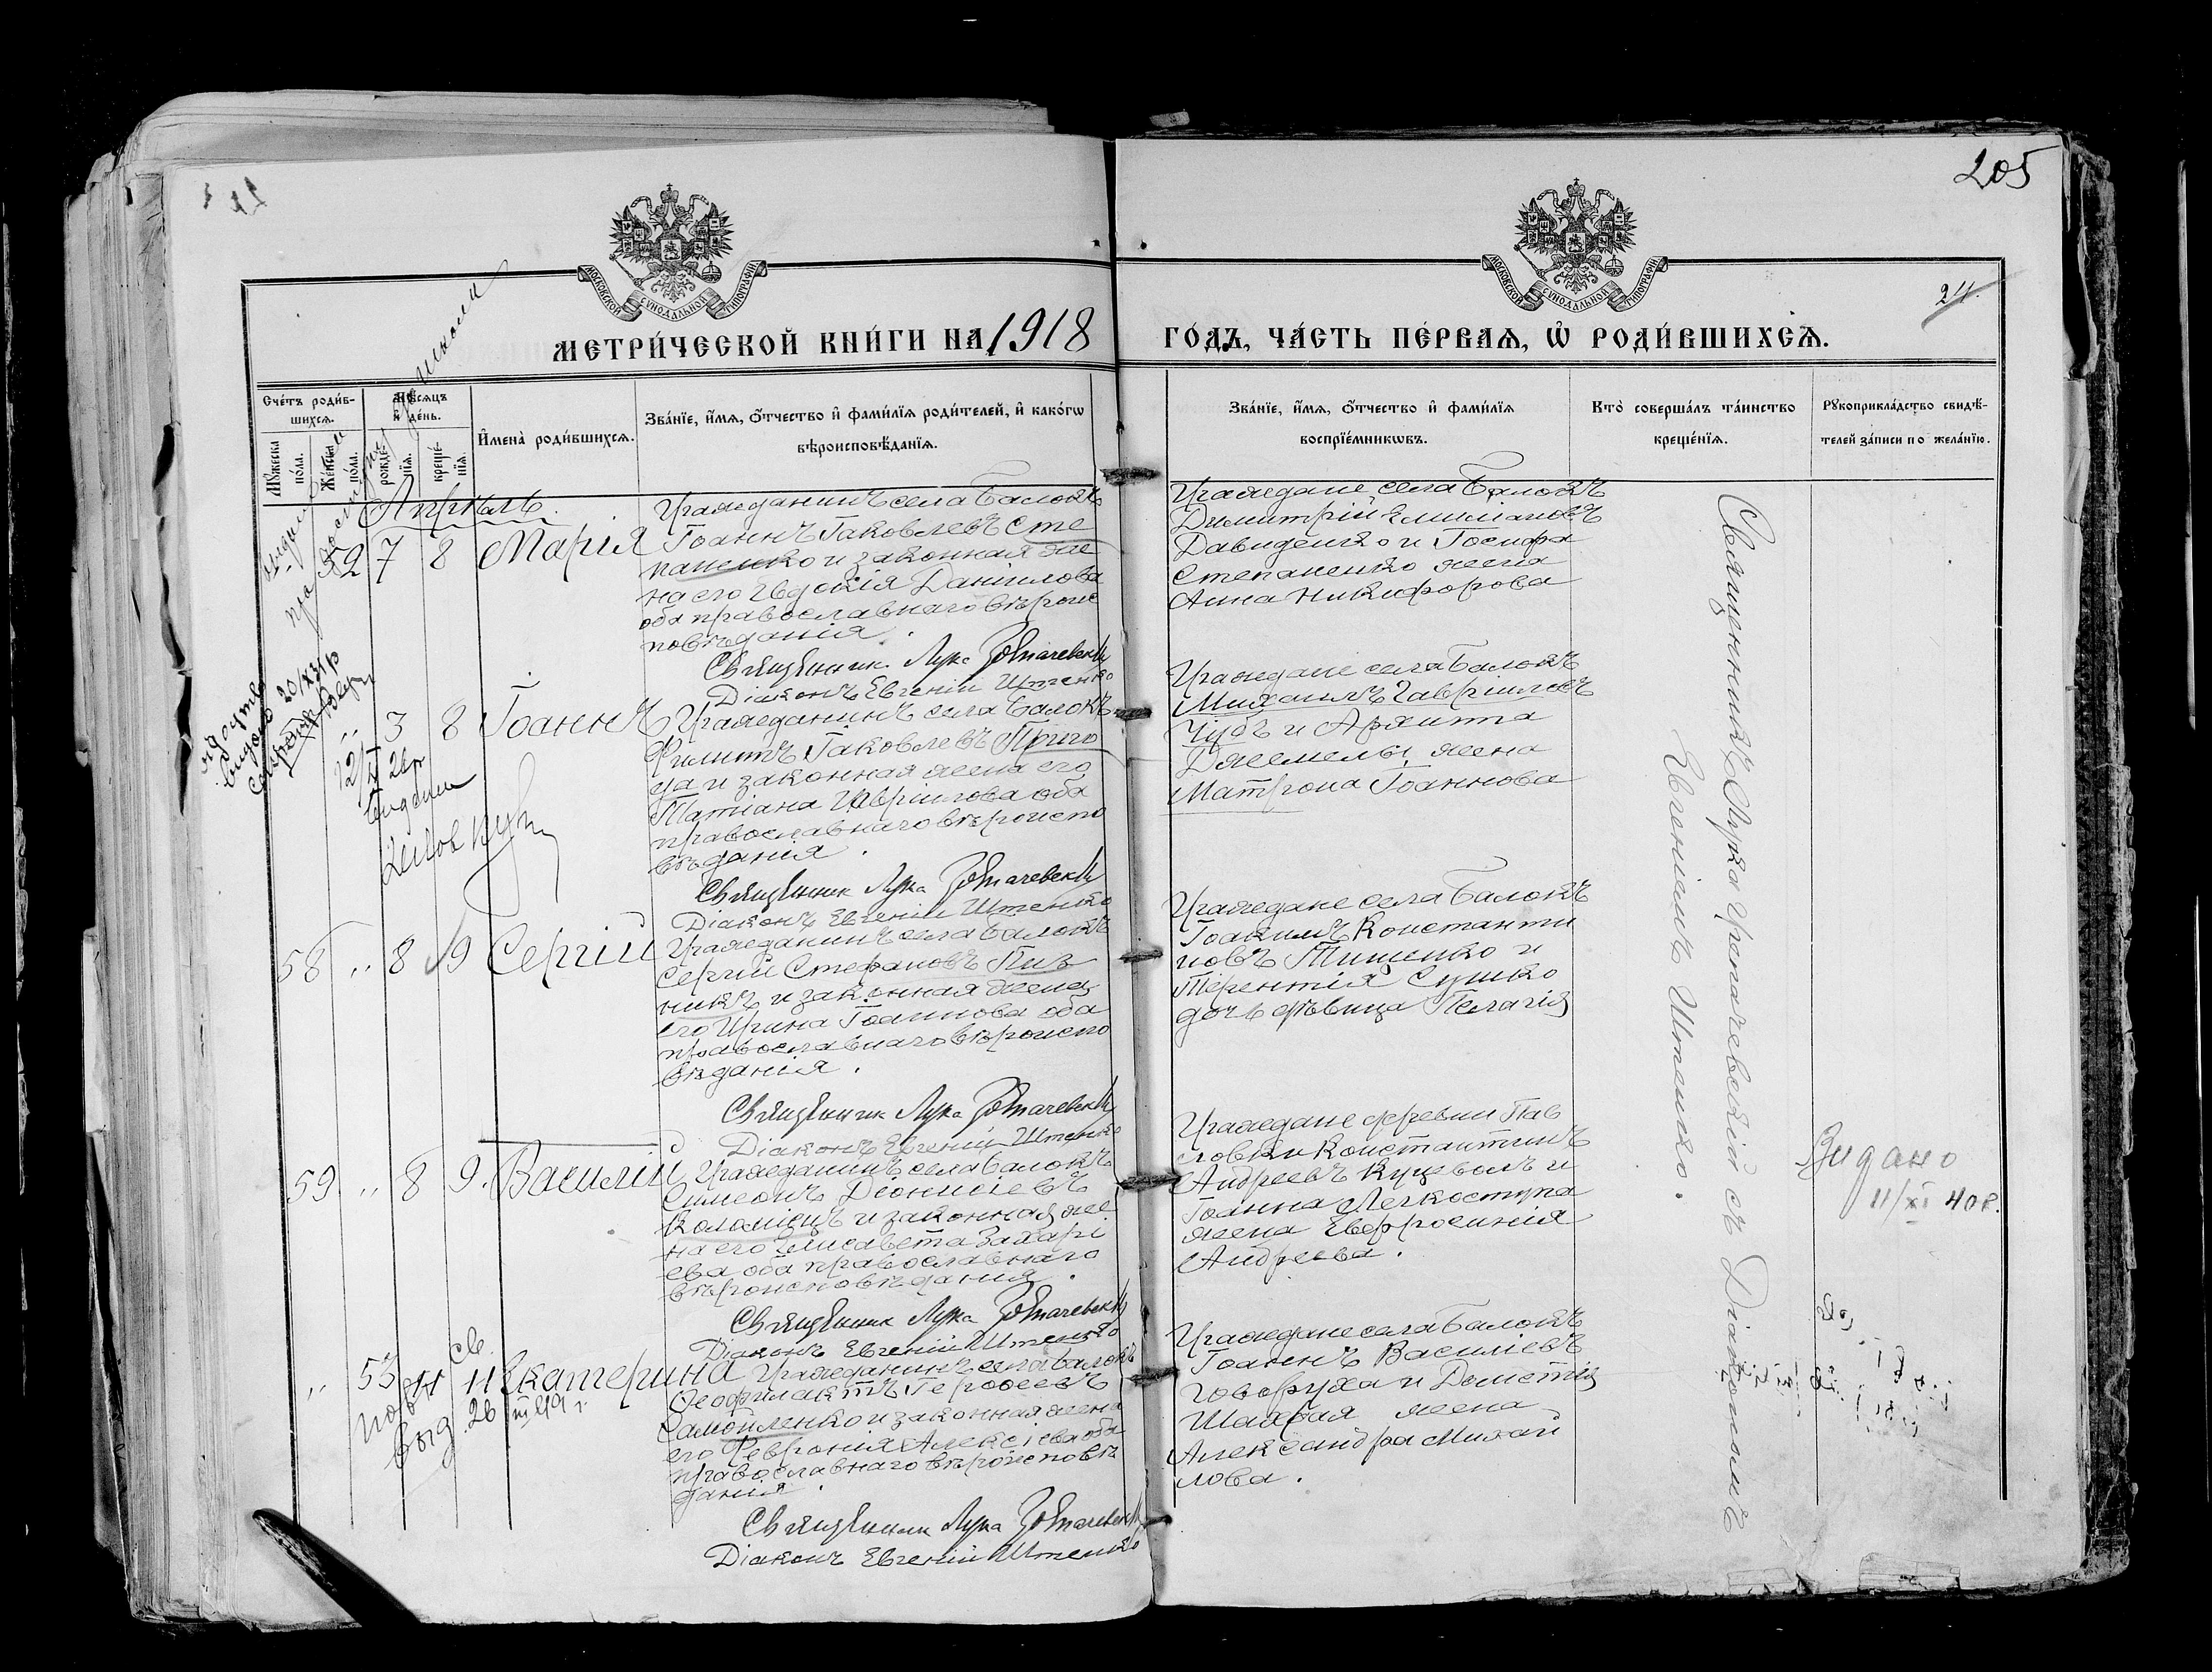 205
24.
МОСКОВСКОЙ СУНОДАЛЬНОЙ ТИПОГРАФІИ
МОСКОВСКОЙ СУНОДАЛЬНОЙ ТИПОГРАФІИ
МЕТРИ́ЧЕСКОЙ КНИ́ГИ НА 1918 ГО́ДЪ, ЧА́СТЬ ПЕ́РВАѦ, Ѡ РОДИ́ВШИХСѦ.
Сче́тъ роди́в-
шихсѧ.
Мꙋ́жеска
по́ла.
Же́нска
по́ла.
Мѣ́сѧцъ
и҆ де́нь.
рожде́-
нїѧ.
креще́-
нїѧ.
И҆мена̀ роди́вшихсѧ.
Зва́нїе, и҆́мѧ, ѻ҆́тчество и҆ фами́лїѧ роди́телей, и҆ како́гѡ
вѣроисповѣ́данїѧ.
Зва́нїе, и҆́мѧ, ѻ҆́тчество и҆ фами́лїѧ
воспрїе́мникѡвъ.
Кто̀ соверша́лъ та́инство
креще́нїѧ.
Рꙋкоприкла́дство свидѣ́-
телей за́писи по жела́нїю.
Апрѣль
52 7 8 Марія
Гражданинъ села Балокъ
Іоаннъ Іаковлевъ Сте
паненко и законная же
на его Евдокія Даніилова
оба православнаго вѣроис
повѣданія.
Священник Лука
Діаконъ Евгеній Штенко
Граждане села Балокъ
Димитрій
Давиденко и Іосифа
Степаненко жена
Анна Никифорова
" 3 8 Іоаннъ
Гражданинъ села Балокъ
Филиппъ Іаковлевъ Приго
да и законная жена его
Татіана Гавріилова оба
православнаго вѣроиспо
вѣданія.
Священник Лука
Діаконъ Евгеній Штенко
Граждане села Балокъ
Михаилъ Гавріиловъ
Чубъ и Архипа
жена
Матрона Іоаннова
58 " 8 9 Сергій
Гражданинъ села Балокъ
Сергій Стефановъ Пиз
никъ и законная жена
его Ирина Іоаннова оба
православнаго вѣроиспо
вѣданія.
Священник Лука
Діаконъ Евгеній Штенко
Граждане села Балокъ
Іоакимъ Константи
новъ Тищенко и
Терентія Сушко
дочь дѣвица Пелагія
59 " 8 9. Василій
Гражданинъ села Балокъ
Симеонъ Діонисіевъ
Коломіецъ и законная же
на его Елисавета Захарі
ева оба православнаго
вѣроисповѣданія.
Священник Лука
Діаконъ Евгеній Штенко
Граждане деревни Пав
ловки Константинъ
Андреевъ Куцеволъ и
Іоанна Легкоступа
жена Евфросинія
Андреева.
Видано
11/XI 40 г.
" 53 11 11 Екатерина
26 III 49 г.
Гражданинъ села Балокъ
Ѳеофилактъ Іероѳеевъ
Самойленко и законная жена
его Февронія Алексіева оба
православнаго вѣроисповѣ
данія.
Священник Лука
Діаконъ Евгеній Штенко
Граждане села Балокъ
Іоаннъ Василіевъ
Говоруха и Дометія
жена
Александра Михай
лова.
Священникъ Лука
съ Діакономъ
Евгеніемъ Штенко.